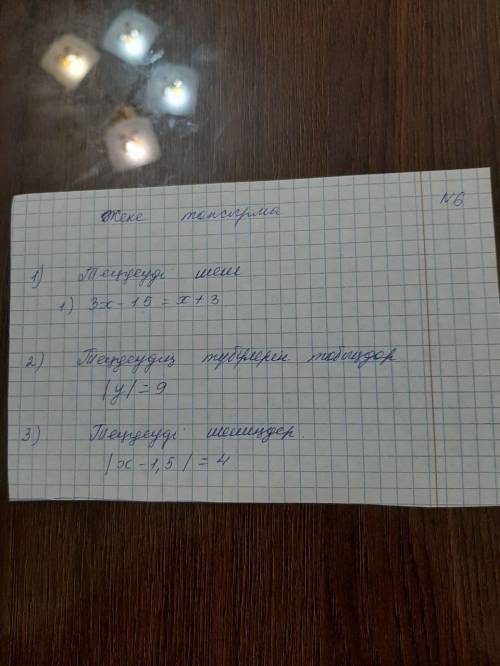 Жеке тапсырма
N6
1) Теңдеуді шеш
1) 3x - 15 = x + 3
2) Теңдеудің түбірлерін табыңдар
|y| = 9
3) Теңдеуді шешіңдер.
|x - 1,5| = 4